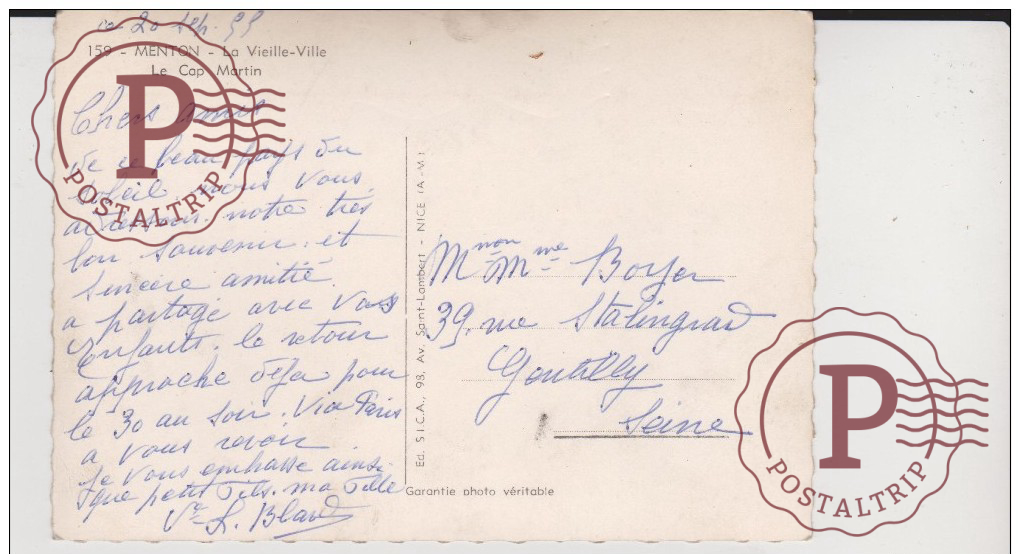 le 20 sep. 55
159 - MENTON - La Vieille-Ville
Le Cap Martin
Chers amis
de ce beau pays du
soleil nous vous
adressons notre très
bon souvenir et
sincère amitié
a partagé avec vos
Enfants. le retour
approche déja pour
le 30 au soir. Via Paris
a vous revoir
je vous embrasse ainsi
que petit fils. ma fille
Ve L.
Ed. S.I.C.A., 98, Av. Saint-Lambert - NICE (A.-M.)
Mme Boyer
39, rue Stalingrad
Gentilly
Seine
Garantie photo véritable
P
POSTALTRIP
P
POSTALTRIP